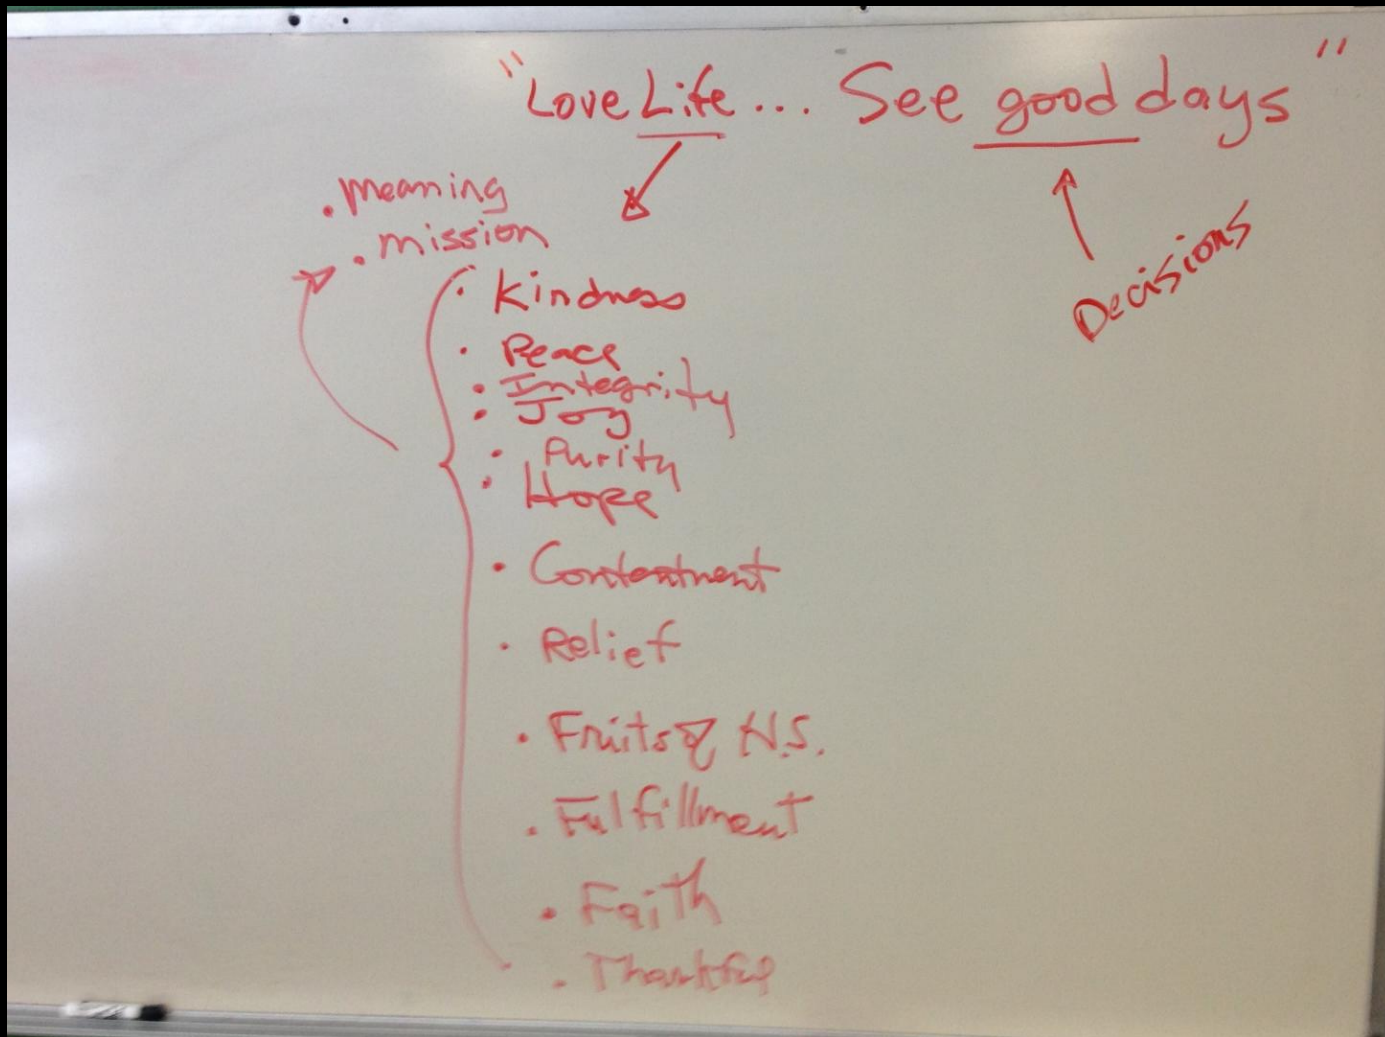 "Love Life... See good days"
• meaning
• mission
Decisions
• Kindness
• Peace
• Integrity
• Joy
• Purity
• Hope
• Contentment
• Relief
• Fruits of H.S.
• Fulfillment
• Faith
• Thankful